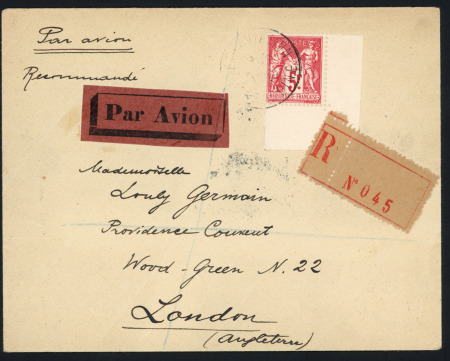 Par avion
Recommandé
Par Avion
5F
R
N° 045
Mademoiselle
Louly Germain
Providence Convent
Wood-Green N. 22
London
(Angleterre)